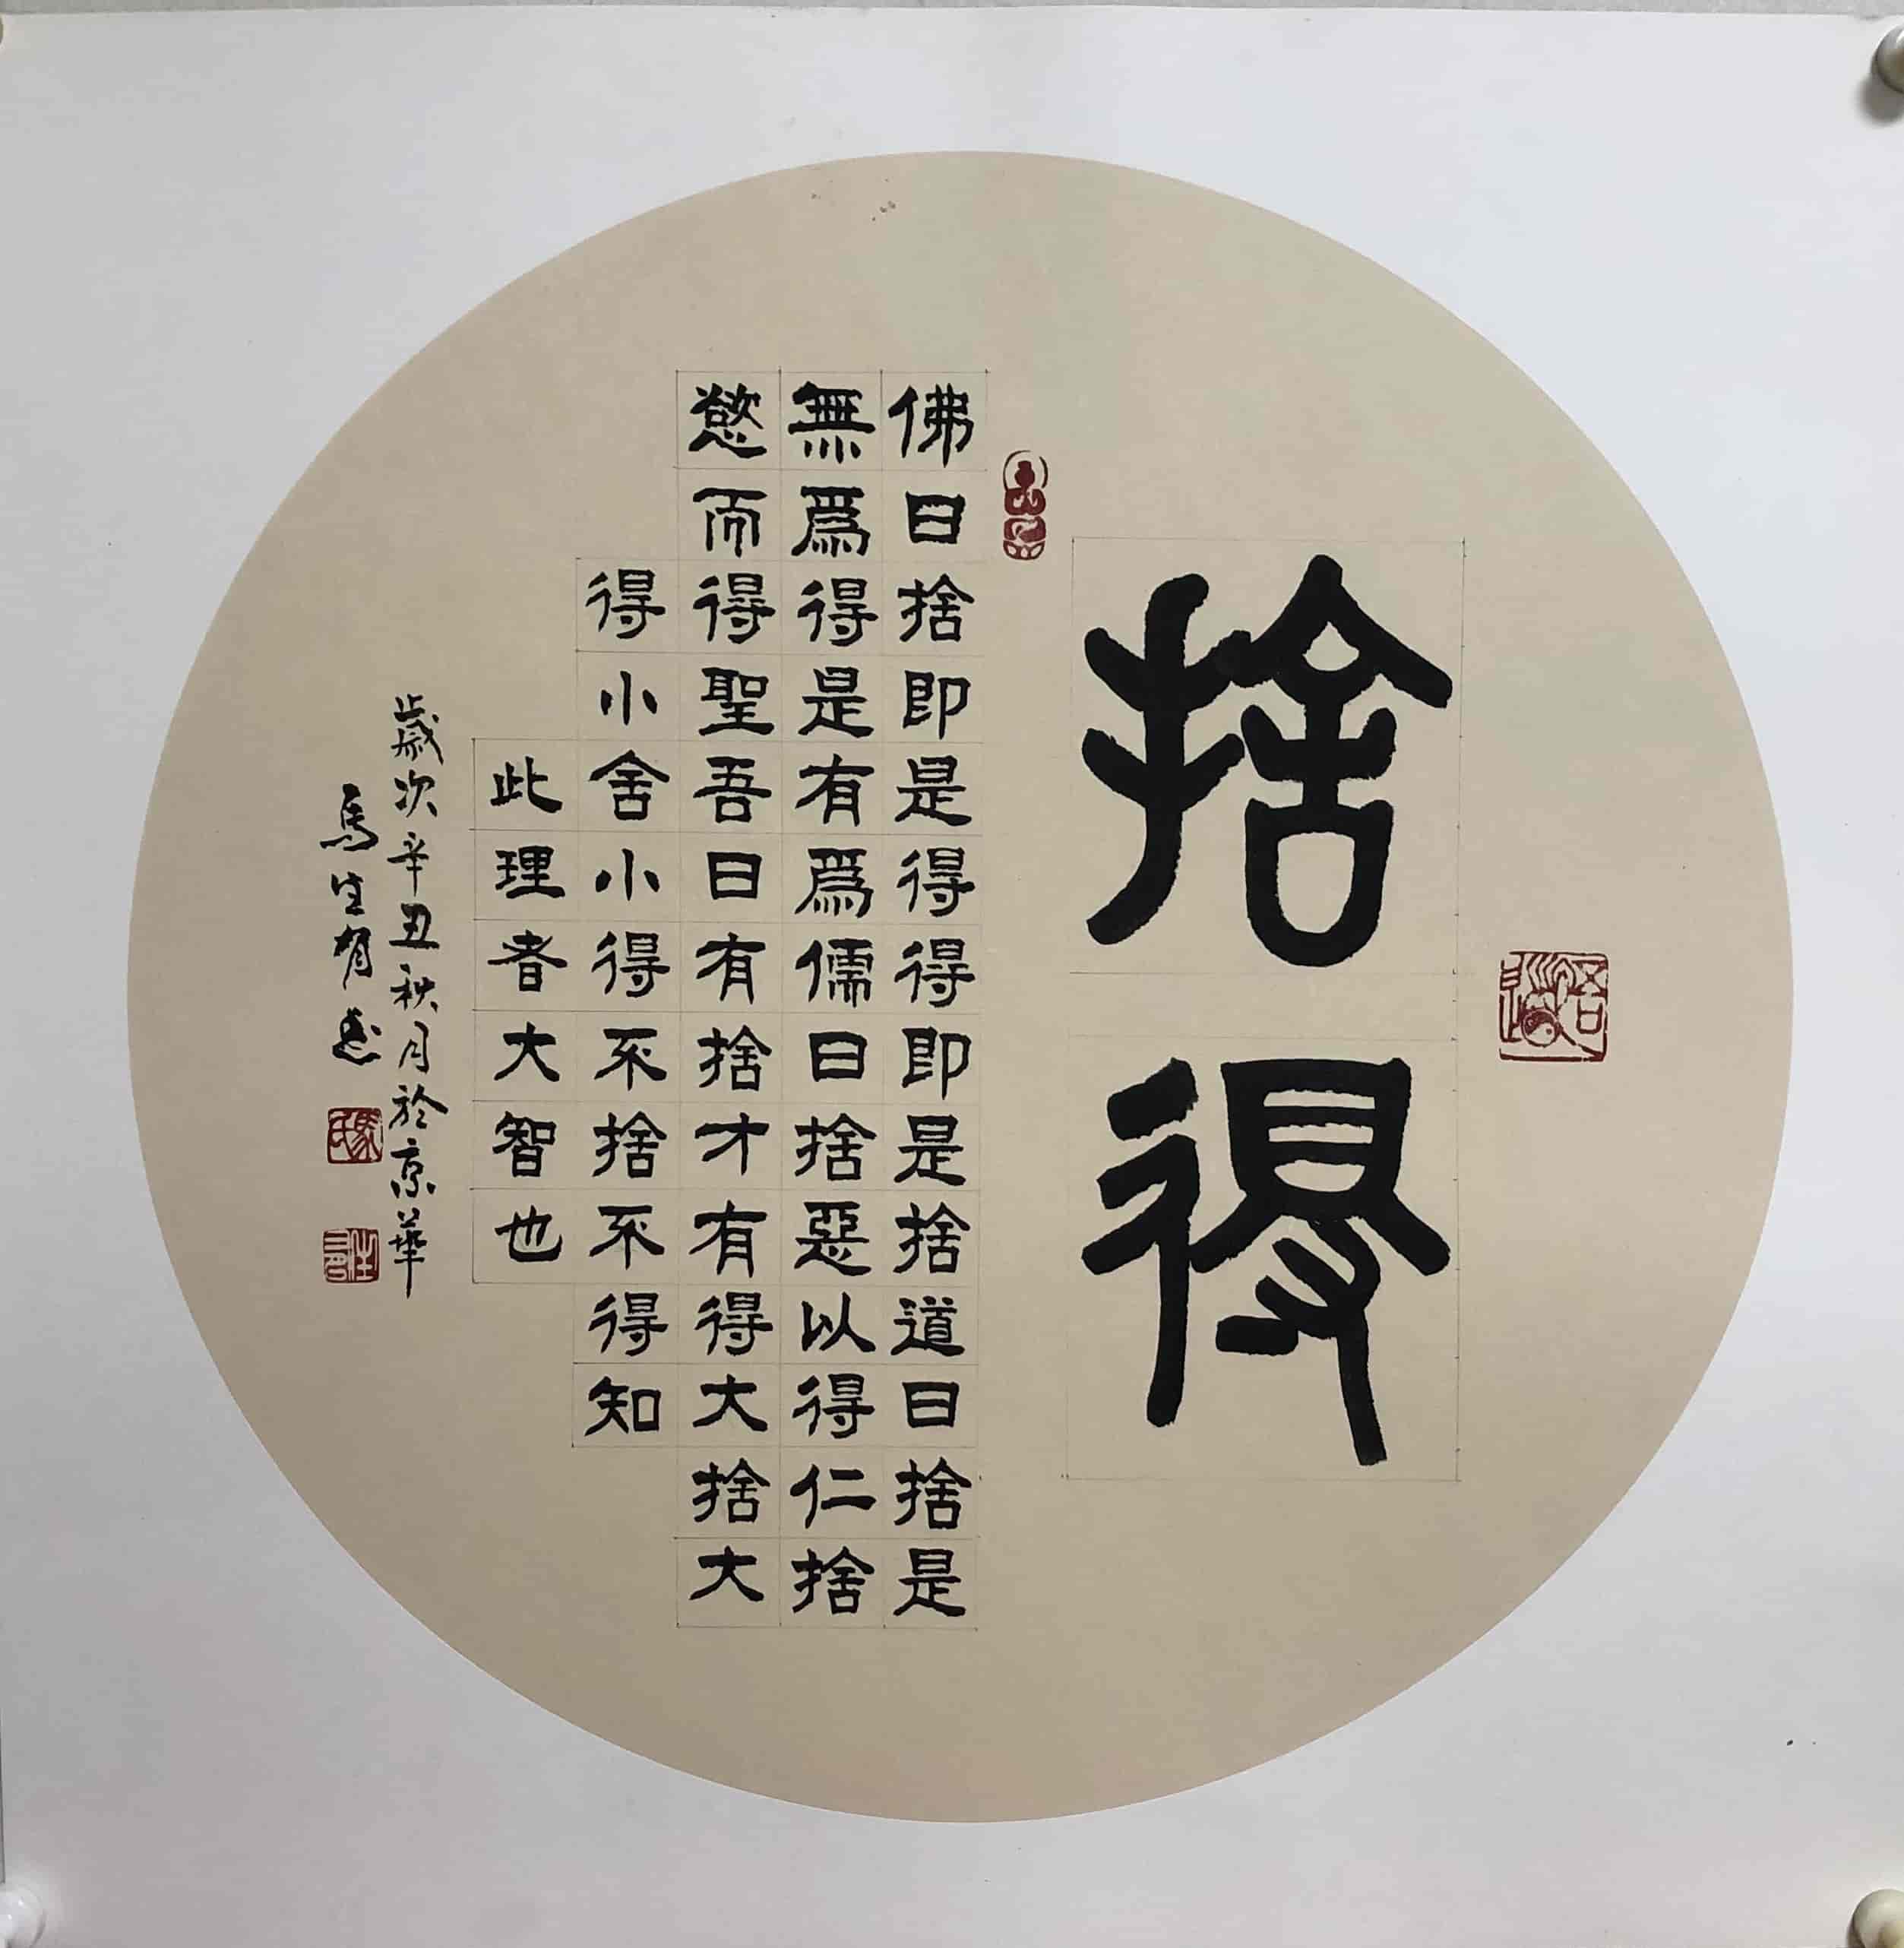 捨得
佛曰捨即是得得即是捨道曰捨是
無爲得是有爲儒曰捨惡以得仁捨
慾而得聖吾曰有捨才有得大捨大
得小舍小得不捨不得知
此理者大智也
歲次辛丑秋月於京華
馬生有